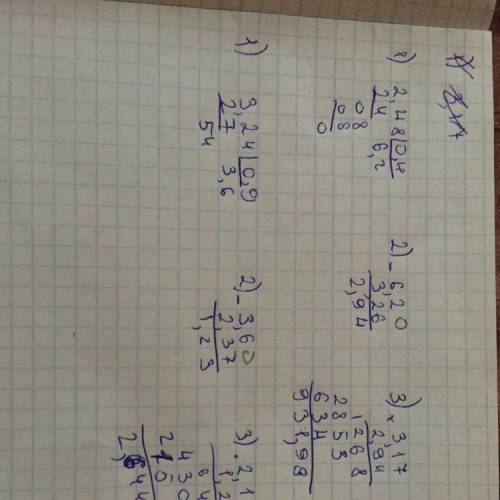 1) 2,48 | 0,4
24 6,2
08
08
0
2) - 6,20
3,26
2,94
3) × 3,17
2,94
1268
2853
634
931,98
1) 3,24 | 0,9
27 3,6
54
2) - 3,60
2,37
1,23
3) · 2,1
1,2
64
430
215